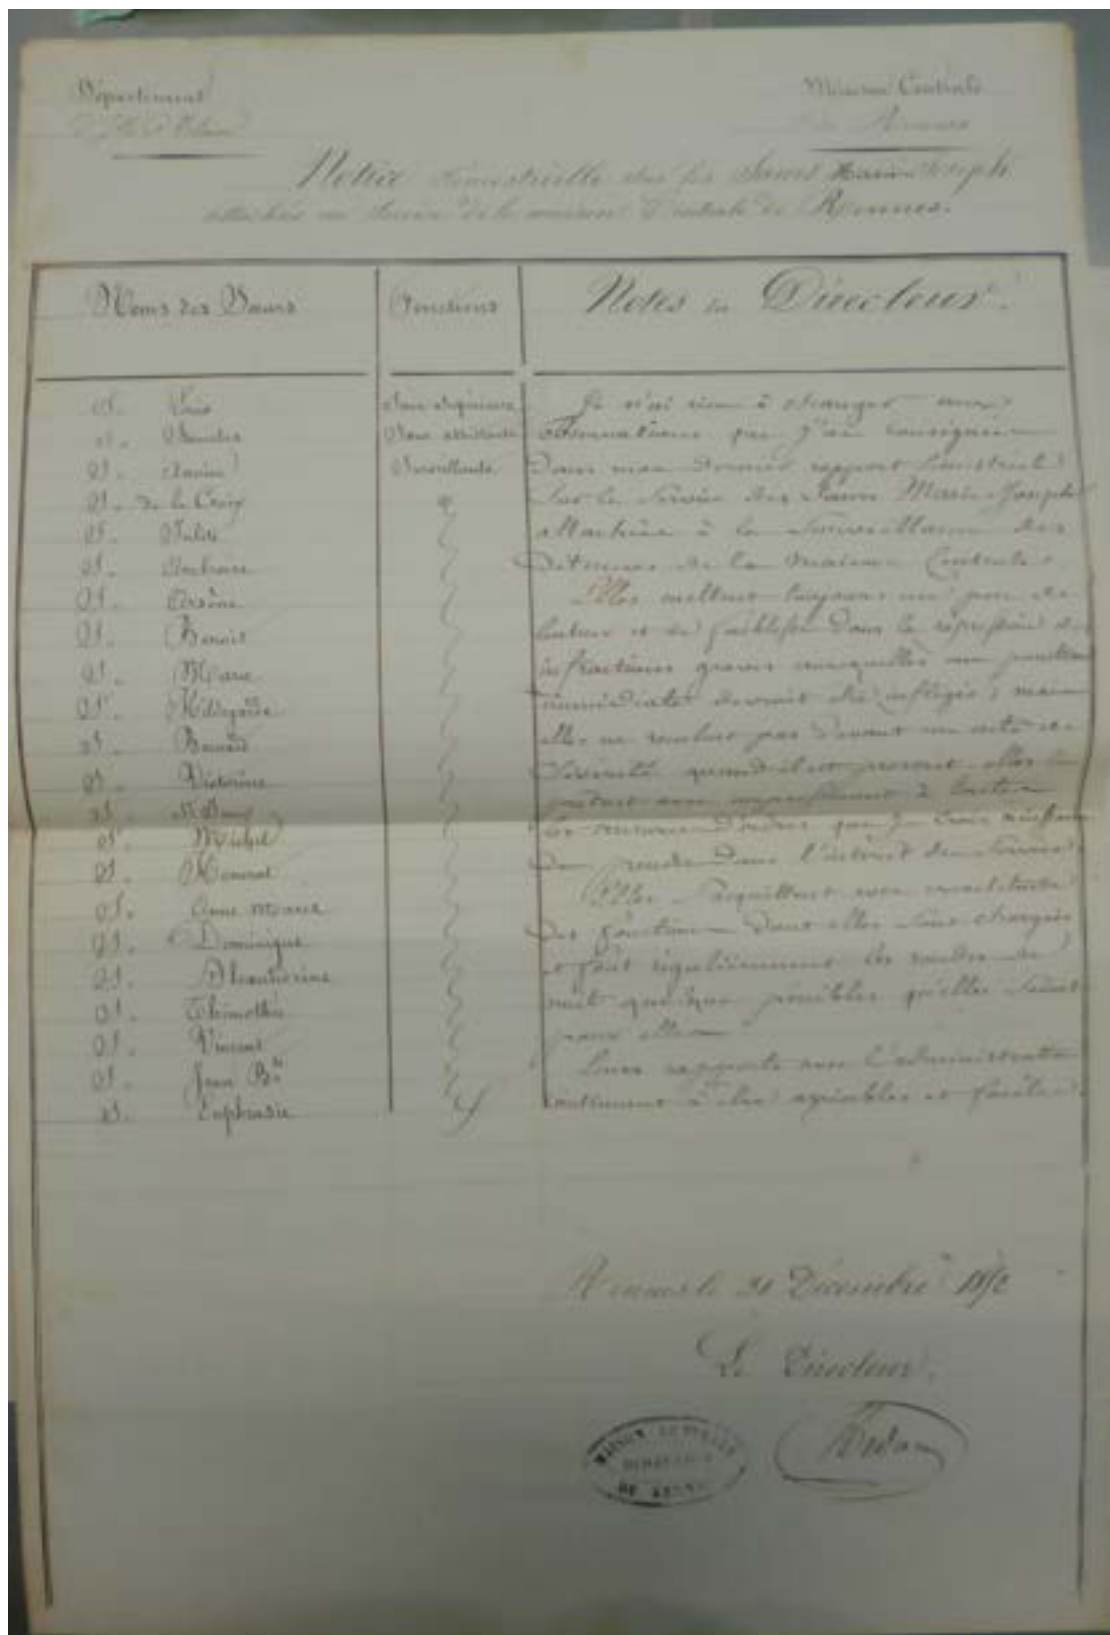 Département
d'Ille et Vilaine
Maison Centrale
de Rennes
Notice semestrielle sur les Sœurs Marie-Joseph
attachées au Service de la maison Centrale de Rennes.
Noms des Sœurs
Fonctions
Notes du Directeur.
S.
Sœur supérieure
Je n'ai rien à changer aux
S.
Sœur assistante
observations que j'ai consignées
S.
Surveillante
dans mon dernier rapport semestriel
S. de la Croix
sur le service des Sœurs Marie-Joseph
S.
attachées à la surveillance des
S. Ambroise
détenues de la maison Centrale.
S. Arsène
Elles mettent toujours un peu de
S. Benoit
et de faiblesse dans la répression des
S. Marie
infractions graves auxquelles une punition
S. Hildegarde
immédiate devrait être infligée; mais
S. Bernard
elles ne reculent pas devant un acte de
S. Victorine
sévérité quand il est prescrit elles se
S.
prêtent avec empressement à toutes
S. Michel
les mesures d'ordre que je crois
S. Honorat
de prendre dans l'intérêt du Service.
S. Anne Marie
Elles s'acquittent avec exactitude
S. Dominique
des fonctions dont elles sont chargées
S. Alexandrine
et font régulièrement les rondes de
S. Thimothée
nuit quelque pénibles qu'elles soient
S. Vincent
pour elles.
S. Jean Bte
Leurs rapports avec l'administration
S. Euphrasie
continuent à être agréables et faciles.
Rennes le 31 Décembre 1872
Le Directeur,
MAISON CENTRALE
DIRECTION
DE RENNES